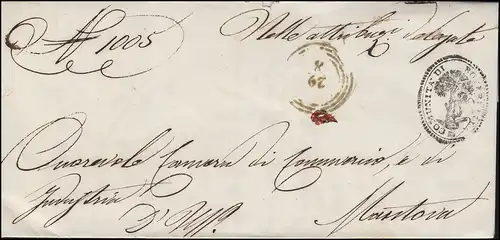 N 1005
Nelle attribuz. delegate
COMUNITA' DI
29
Onorevole Camera di Commercio, e di
Industria
D'Uff.
Mantova